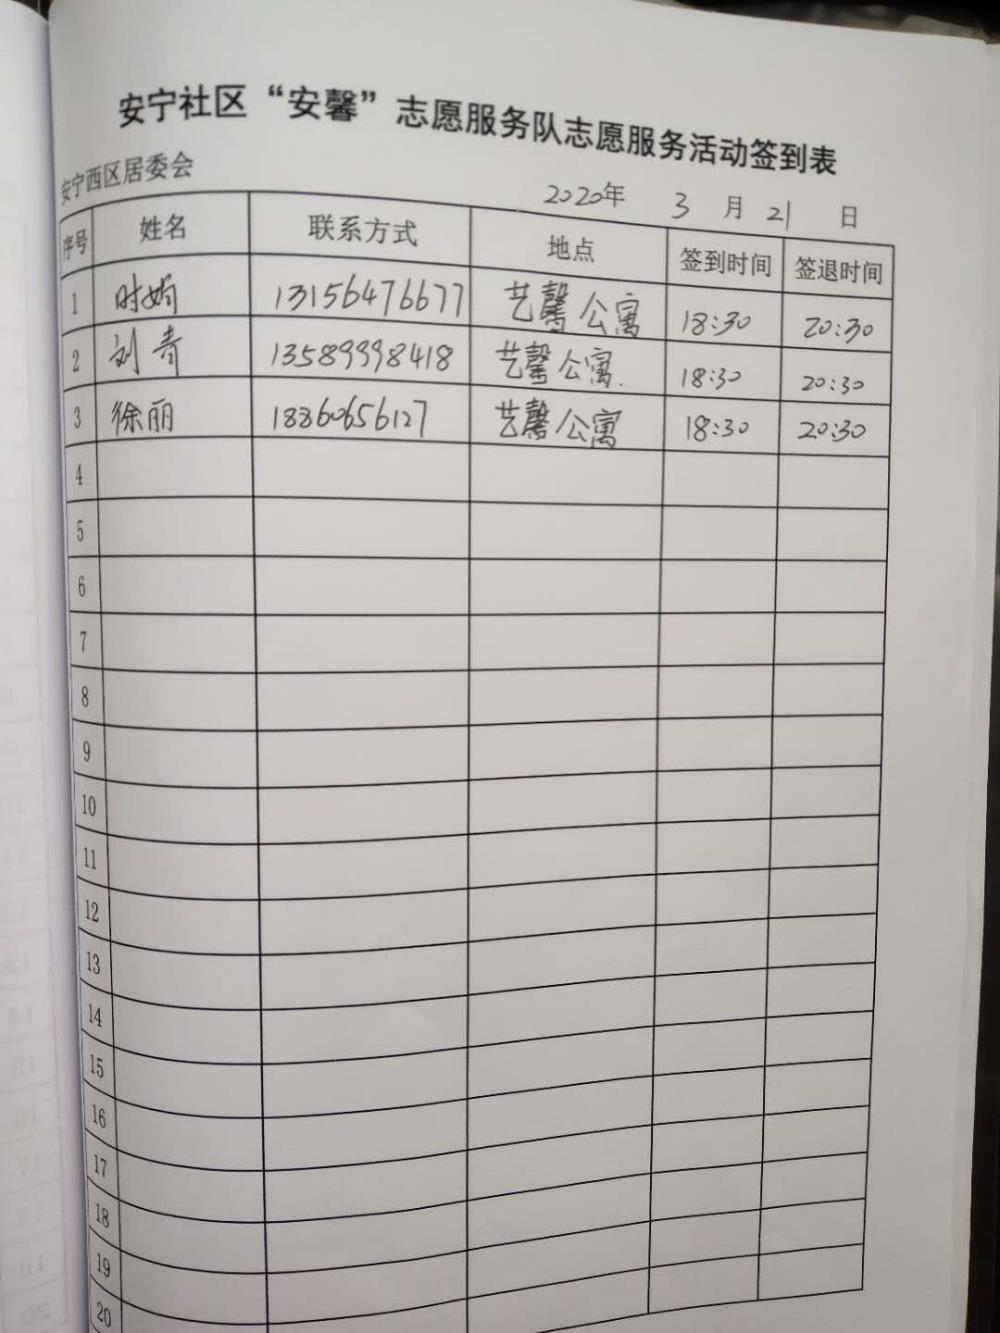 安宁社区“安馨”志愿服务队志愿服务活动签到表
安宁西区居委会 2020年 3 月 21 日
序号 姓名 联系方式 地点 签到时间 签退时间
1 时娟 13156476677 艺馨公寓 18:30 20:30
2 刘青 13589998418 艺馨公寓 18:30 20:30
3 徐丽 18860656127 艺馨公寓 18:30 20:30
4
5
6
7
8
9
10
11
12
13
14
15
16
17
18
19
20